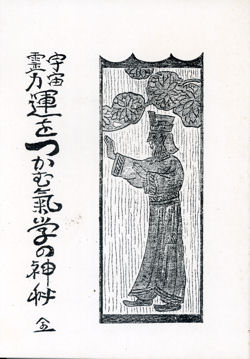 宇宙
霊力運をつかむ氣学の神秘 全